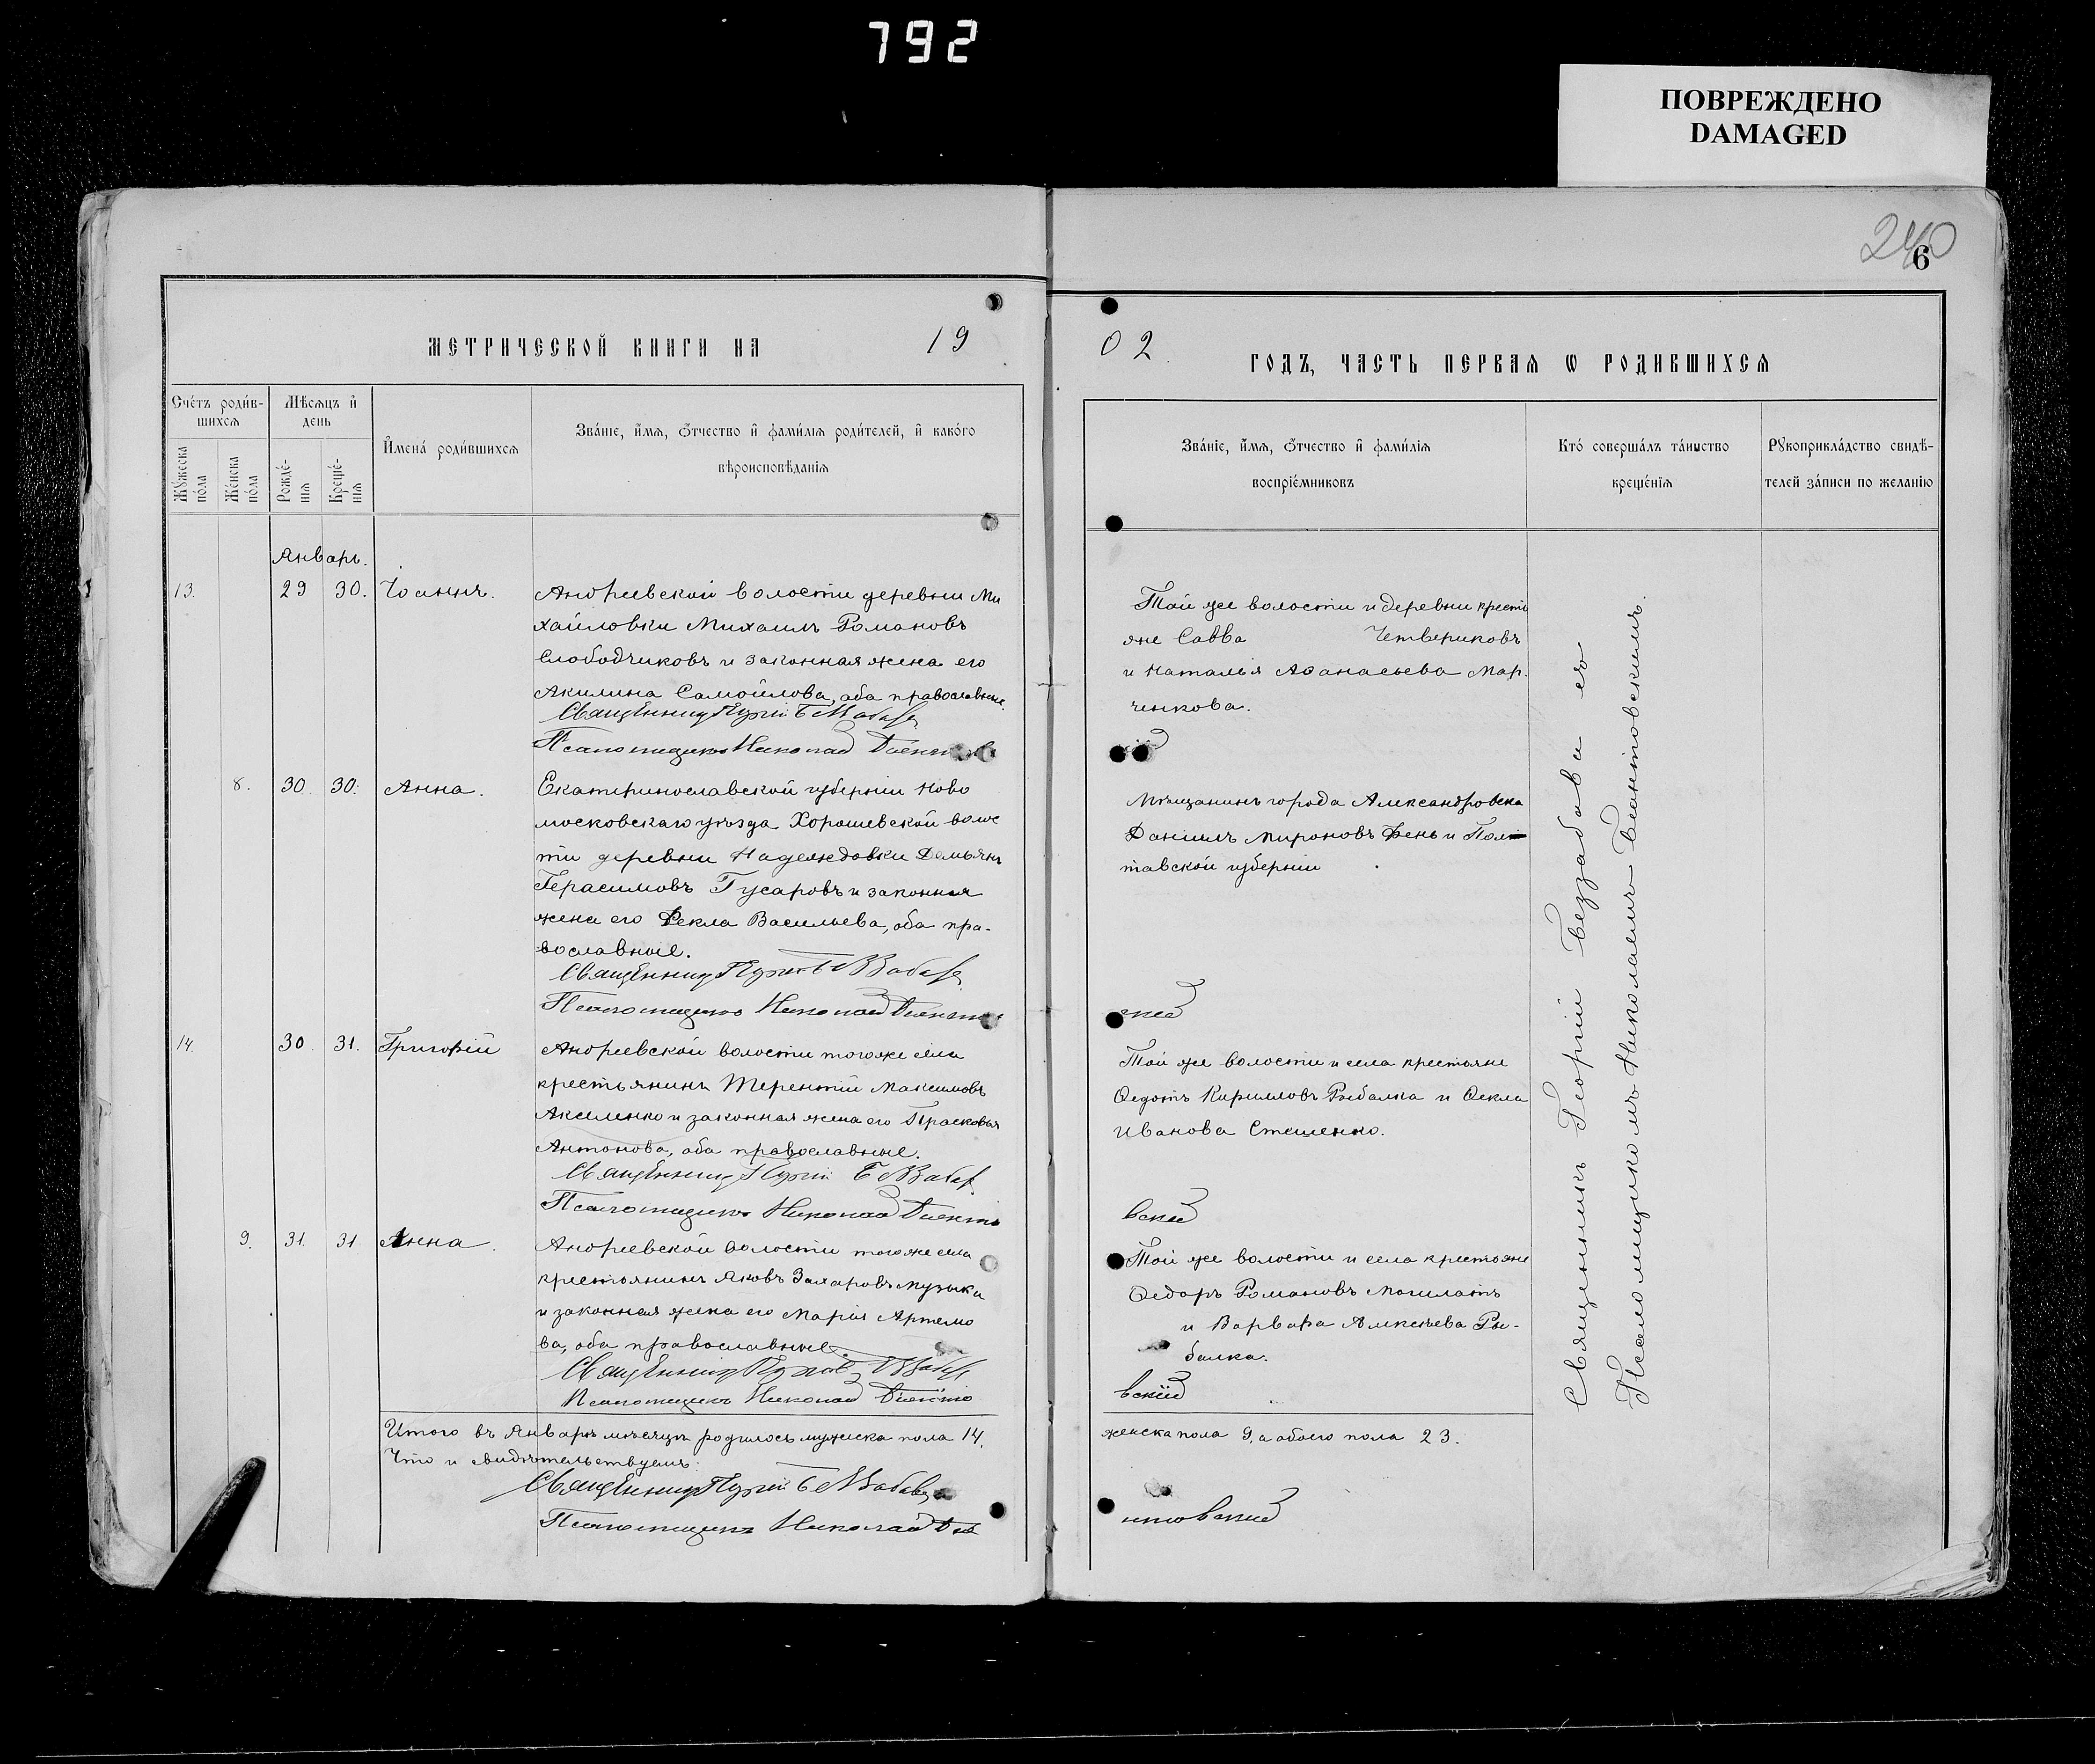 792
ПОВРЕЖДЕНО
DAMAGED
240
6
МЕТРИЧЕСКОЙ КНИГИ НА 19
02 ГОДЪ, ЧАСТЬ ПЕРВАЯ Ѡ РОДИВШИХСЯ
Счетъ родив-
шихся
Мужеска
пола
Женска
пола
Мѣсяцъ и
день
Рожде-
нія
Креще-
нія
Имена родившихся
Званіе, имя, отчество и фамилія родителей, и какого
вѣроисповѣданія
Званіе, имя, отчество и фамилія
воспріемниковъ
Кто совершалъ таинство
крещенія
Рукоприкладство свидѣ-
телей записи по желанію
Январь.
13. 29 30. Іоаннъ.
Андреевской волости деревни Ми
хайловки Михаилъ Романовъ
Слободчиковъ и законная жена его
Акилина Самойлова, оба православные.
Священникъ Георгій
Псаломщикъ Николай
Той же волости и деревни кресть
яне Савва Четвериковъ
и Наталья Аѳанасьева Мар.
ченкова.
8. 30 30. Анна.
Екатеринославской губерніи Ново
московскаго уѣзда Хорошевской волос
ти деревни Надеждовки Демьянъ
Герасимовъ Гусаровъ и законная
жена его Ѳекла Васильева, оба пра-
вославные.
Священникъ Георгій
Псаломщикъ Николай
Мѣщанинъ города Александровска
Даніилъ Мироновъ Фень и Пол
тавской губерніи
14. 30. 31. Григорій
Андреевской волости того же села
крестьянинъ Терентій Максимовъ
Акименко и законная жена его Прасковья
Антонова, оба православные.
Священникъ Георгій
Псаломщикъ Николай
Той же волости и села крестьяне
Ѳедотъ Кирилловъ Рыбалка и Ѳекла
Иванова Стешенко.
вскій
9. 31. 31 Анна.
Андреевской волости того же села
крестьянинъ Яковъ Захаровъ Музыка
и законная жена его Марія Артемо
ва, оба православные.
Священникъ Георгій
Псаломщикъ Николай
Той же волости и села крестьяне
Ѳедоръ Романовъ Могилатъ
и Варвара Алексѣева Ры-
балка.
вскій
Священникъ Георгій Беззабава съ
Псаломщикомъ Николаемъ
Итого въ Январѣ мѣсяцѣ родилось мужеска пола 14,
женска пола 9, а обоего пола 23.
Что и свидѣтельствуемъ:
Священникъ Георгій
Псаломщикъ Николай
нтовскій